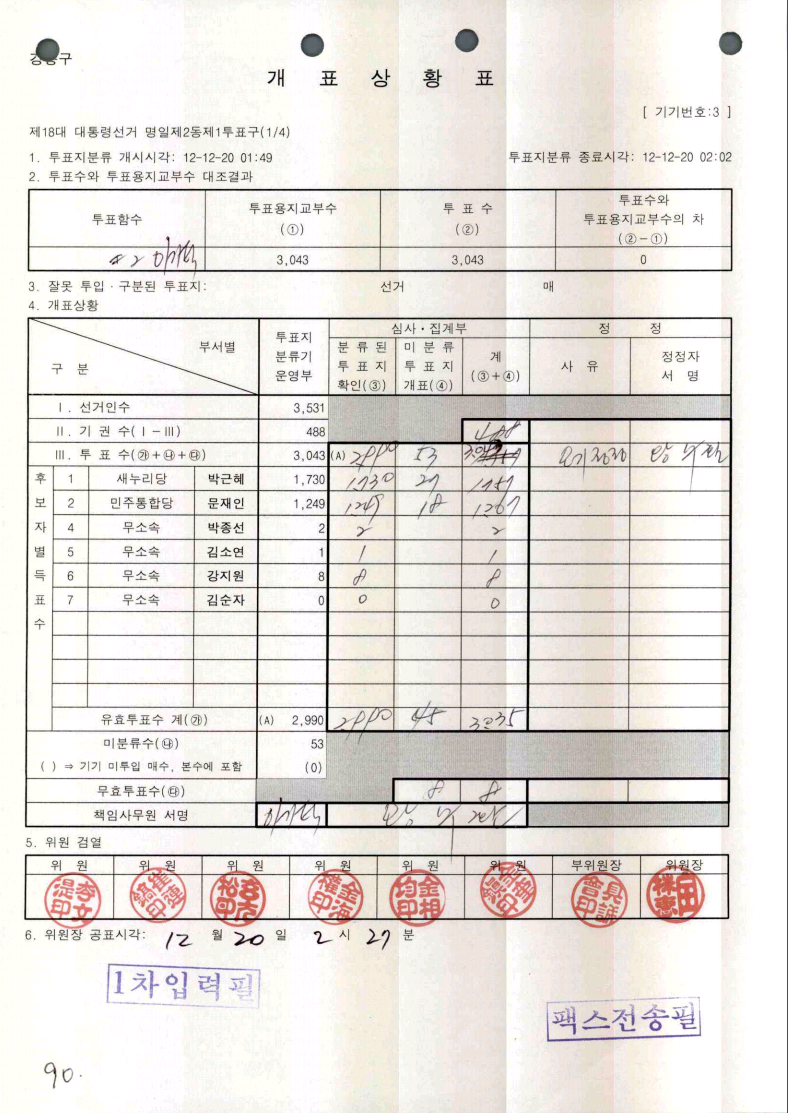 강동구
개 표 상 황 표
[ 기기번호:3 ]
제18대 대통령선거 명일제2동제1투표구(1/4)
1. 투표지분류 개시시각: 12-12-20 01:49 투표지분류 종료시각: 12-12-20 02:02
2. 투표수와 투표용지교부수 대조결과
투표함수 투표용지교부수 (①) 투 표 수 (②) 투표수와 투표용지교부수의 차 (②-①)
3,043 3,043 0
3. 잘못 투입·구분된 투표지: 선거 매
4. 개표상황
구 분 부서별 투표지 분류기 운영부 심사·집계부 정 정
분 류 된 투 표 지 확인(③) 미 분 류 투 표 지 개표(④) 계 (③+④) 사 유 정정자 서 명
Ⅰ. 선거인수 3,531
Ⅱ. 기 권 수(Ⅰ-Ⅲ) 488 488
Ⅲ. 투 표 수(㉮+㉯+㉰) 3,043 (A) 2990 53 오기정정
후보자별득표수
1 새누리당 박근혜 1,730 1730 27 1757
2 민주통합당 문재인 1,249 1249 18 1267
4 무소속 박종선 2 2 2
5 무소속 김소연 1 1 1
6 무소속 강지원 8 8 8
7 무소속 김순자 0 0 0
유효투표수 계(㉮) (A) 2,990 2990 45 3035
미분류수(㉯) 53
( ) ⇒ 기기 미투입 매수, 본수에 포함 (0)
무효투표수(㉰) 8 8
책임사무원 서명
5. 위원 검열
위 원 위 원 위 원 위 원 위 원 위 원 부위원장 위원장
6. 위원장 공표시각: 12 월 20 일 2 시 27 분
1차입력필
팩스전송필
90.